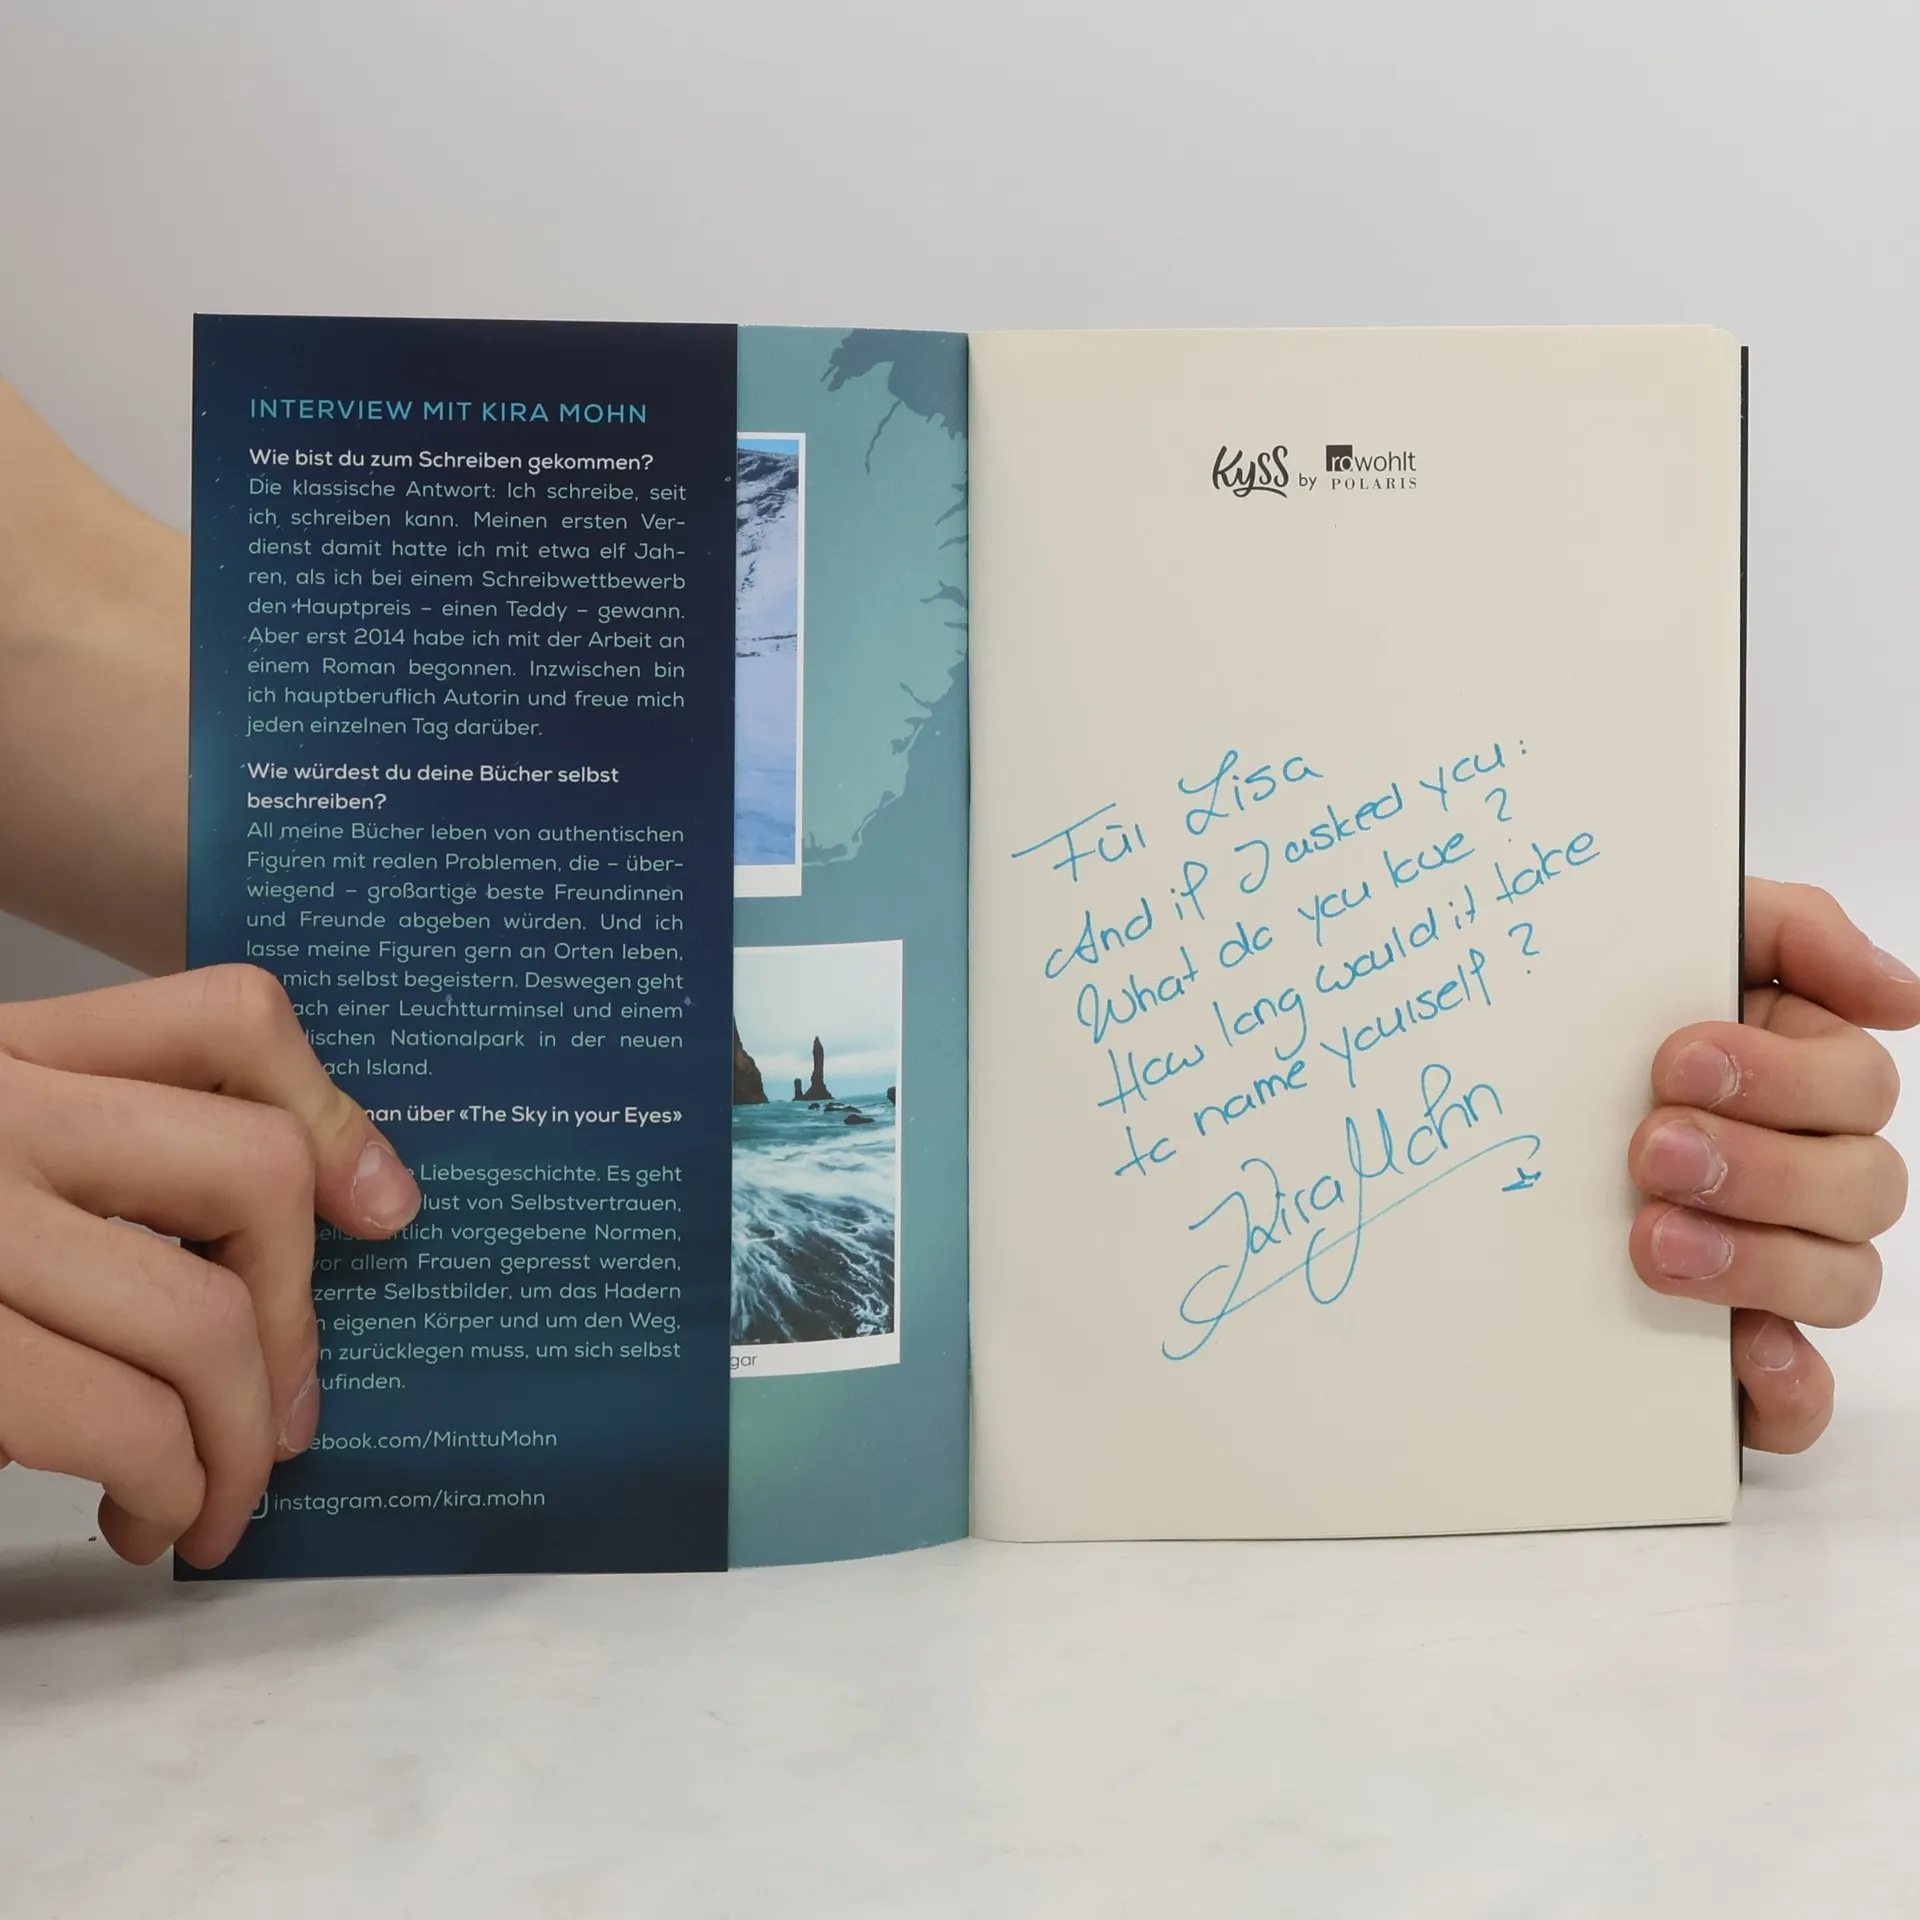 INTERVIEW MIT KIRA MOHN
Wie bist du zum Schreiben gekommen?
Die klassische Antwort: Ich schreibe, seit
ich schreiben kann. Meinen ersten Ver-
dienst damit hatte ich mit etwa elf Jah-
ren, als ich bei einem Schreibwettbewerb
den Hauptpreis – einen Teddy – gewann.
Aber erst 2014 habe ich mit der Arbeit an
einem Roman begonnen. Inzwischen bin
ich hauptberuflich Autorin und freue mich
jeden einzelnen Tag darüber.
Wie würdest du deine Bücher selbst
beschreiben?
All meine Bücher leben von authentischen
Figuren mit realen Problemen, die – über-
wiegend – großartige beste Freundinnen
und Freunde abgeben würden. Und ich
lasse meine Figuren gern an Orten leben,
mich selbst begeistern. Deswegen geht
ach einer Leuchtturminsel und einem
dischen Nationalpark in der neuen
ach Island.
man über «The Sky in your Eyes»
Liebesgeschichte. Es geht
lust von Selbstvertrauen,
sellschaftlich vorgegebene Normen,
vor allem Frauen gepresst werden,
zerrte Selbstbilder, um das Hadern
eigenen Körper und um den Weg,
n zurücklegen muss, um sich selbst
ufinden.
ebook.com/MinttuMohn
instagram.com/kira.mohn
gar
Kyss by rowohlt
POLARIS
Für Lisa
And if I asked you:
What do you love?
How long would it take
to name yourself?
Kira Mohn